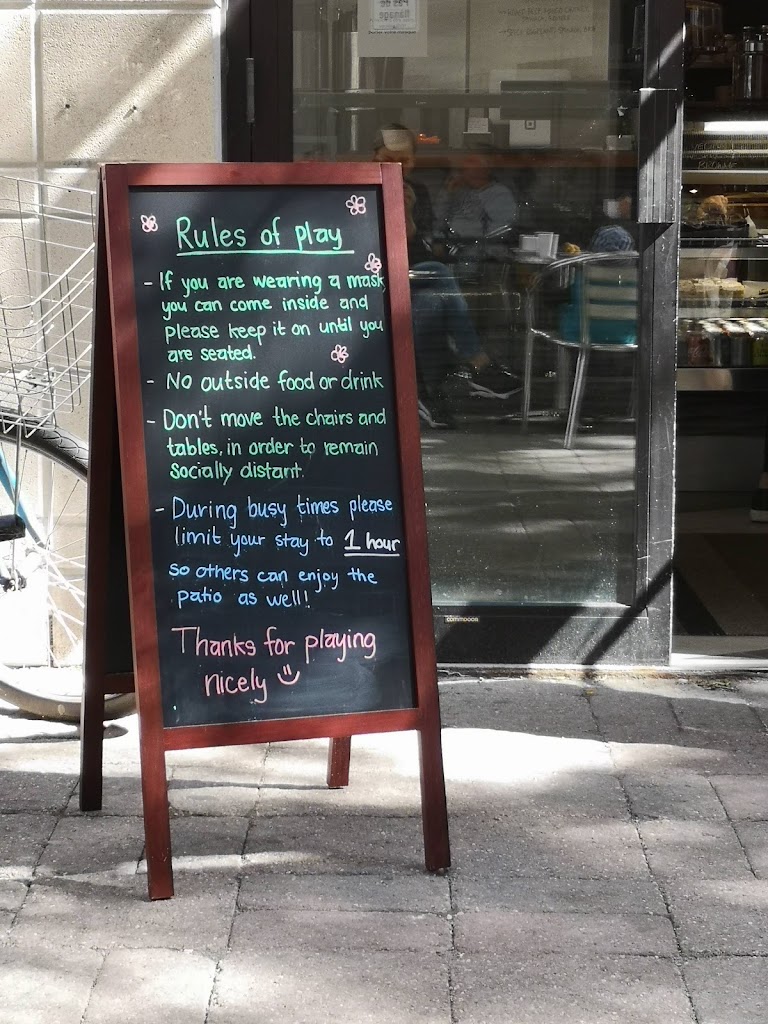 Rules of play
- If you are wearing a mask
you can come inside and
please keep it on until you
are seated.
- No outside food or drink
- Don't move the chairs and
tables, in order to remain
socially distant.
- During busy times please
limit your stay to 1 hour
so others can enjoy the
patio as well!
Thanks for playing
nicely
commooon
BROWNIE